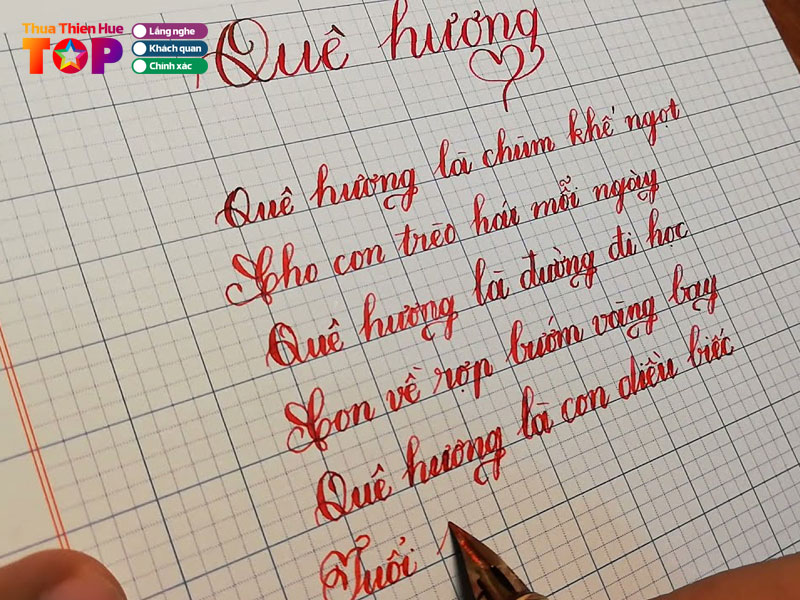 Thua Thien Hue
TOP
Lắng nghe
Khách quan
Chính xác
Quê hương
Quê hương là chùm khế ngọt
Cho con trèo hái mỗi ngày
Quê hương là đường đi học
Con về rợp bướm vàng bay
Quê hương là con diều biếc
Tuổi